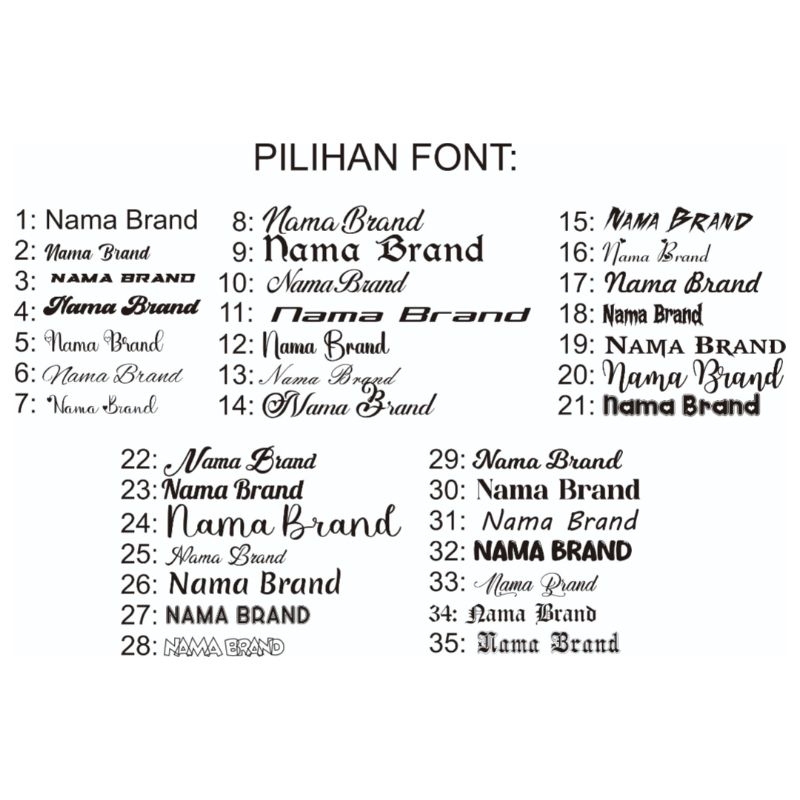 PILIHAN FONT:
1: Nama Brand
2: Nama Brand
3: NAMA BRAND
4: Nama Brand
5: Nama Brand
6: Nama Brand
7: Nama Brand
8: Nama Brand
9: Nama Brand
10: Nama Brand
11: Nama Brand
12: Nama Brand
13: Nama Brand
14: Nama Brand
15: NAMA BRAND
16: Nama Brand
17: Nama Brand
18: Nama Brand
19: NAMA BRAND
20: Nama Brand
21: Nama Brand
22: Nama Brand
23: Nama Brand
24: Nama Brand
25: Nama Brand
26: Nama Brand
27: NAMA BRAND
28: NAMA BRAND
29: Nama Brand
30: Nama Brand
31: Nama Brand
32: NAMA BRAND
33: Nama Brand
34: Nama Brand
35: Nama Brand